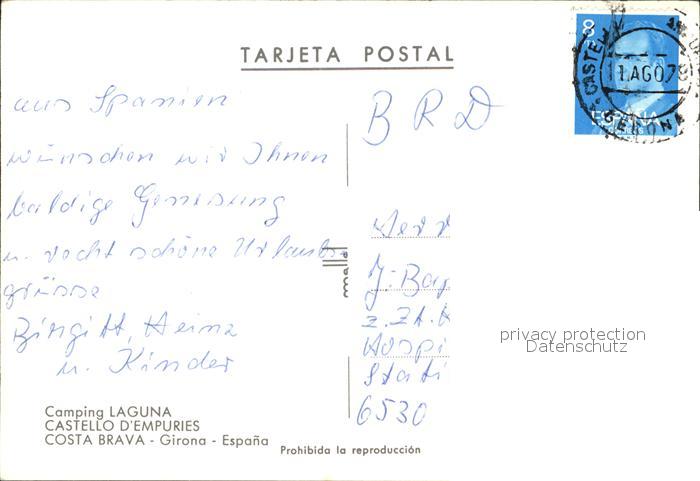 TARJETA POSTAL
8
ESPAÑA
CASTELL
1.AGO.78
GERONA
aus Spanien
wünschen wir Ihnen
baldige Genesung
u. recht schöne Urlaubs-
grüsse
Birgitt, Heinz
u. Kinder
BRD
Herr
J. Bay
z. Zt. K
Hospi
Stati
6530
privacy protection
Datenschutz
Camping LAGUNA
CASTELLO D'EMPURIES
COSTA BRAVA - Girona - España
Prohibida la reproducción